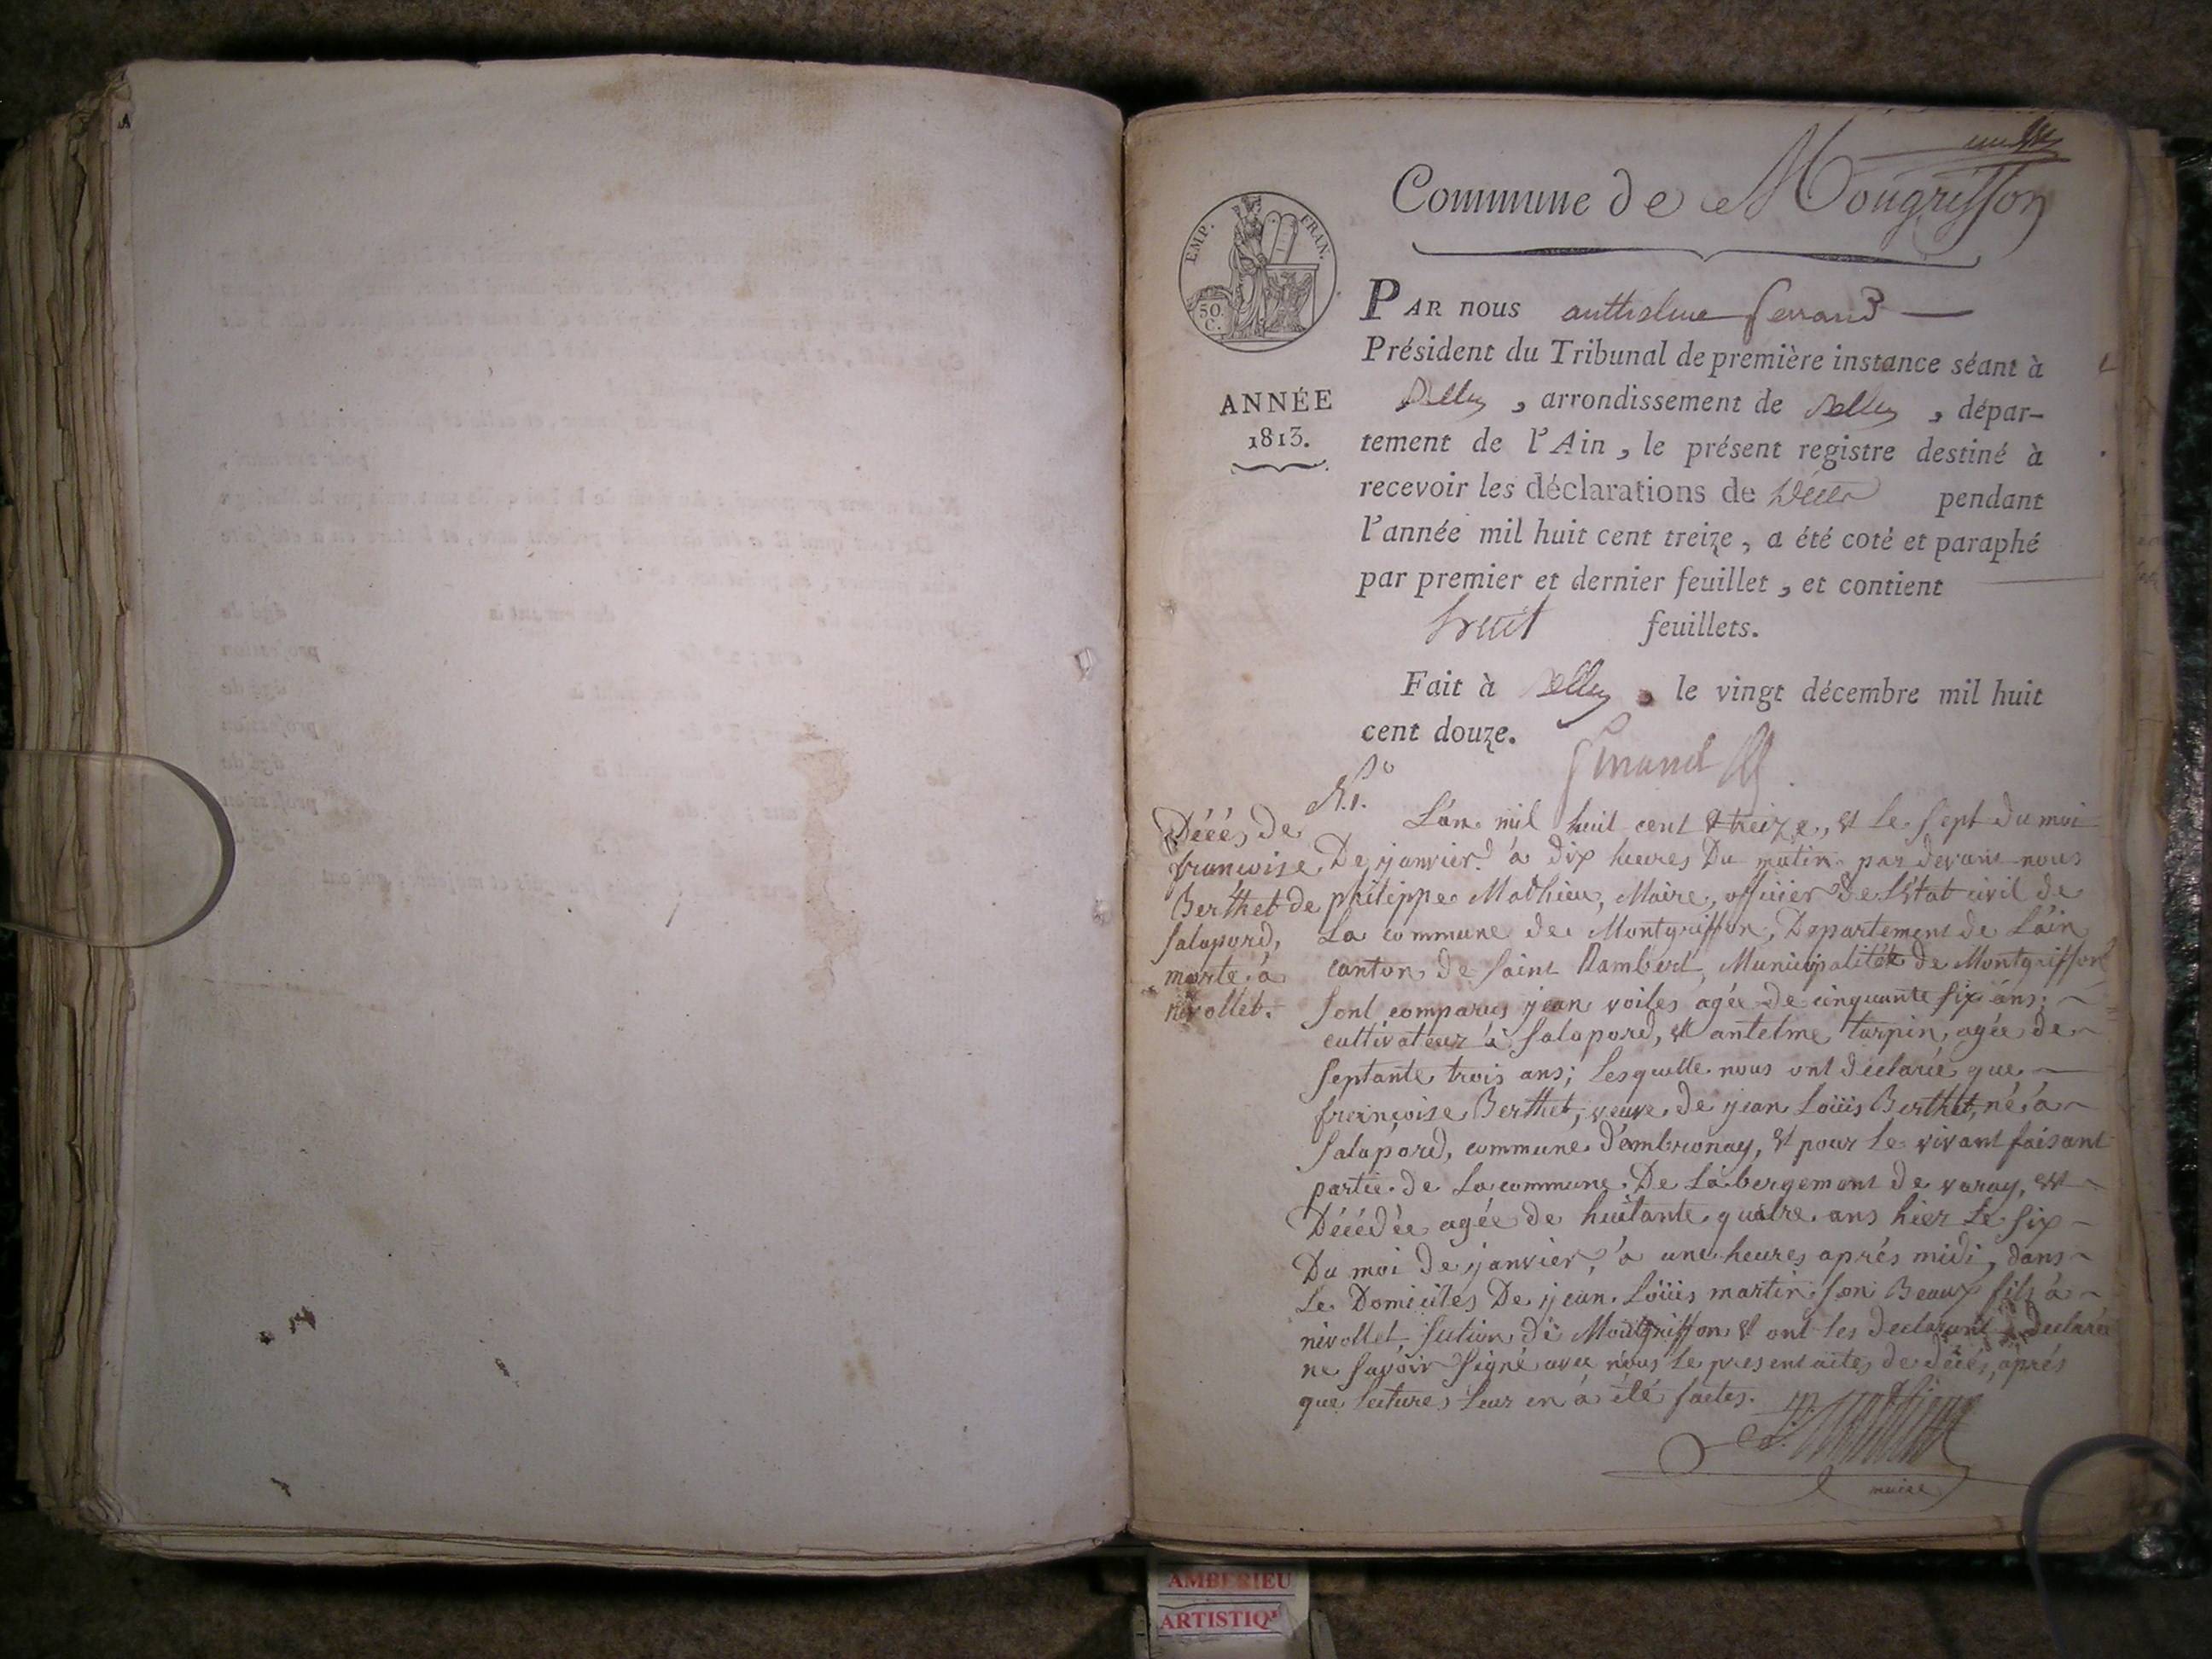 Commune de Mougriffon
EMP. FRAN.
50.
C.
ANNÉE
1813.
PAR nous anthelme ferrand
Président du Tribunal de première instance séant à
Belley, arrondissement de Belley, dépar-
tement de l'Ain, le présent registre destiné à
recevoir les déclarations de décès pendant
l'année mil huit cent treize, a été coté et paraphé
par premier et dernier feuillet, et contient
huit feuillets.
Fait à Belley, le vingt décembre mil huit
cent douze.
Décés de
francoise
Berthet de
salapord,
morte à
nivollet.
L'an mil huit cent et treize, et le sept du moi
De janvier à dix heures Du matin par devant nous
philippe Mathieu, Maire, officier de L'état civil de
La commune de Montgriffon, Departement de L'ain
canton de saint Rambert, Municipalitét de Montgriffon
sont comparus jean voiles agée de cinquante six ans;
cultivateur à salapord, et antelme turpin, agée de
septante trois ans; Lesquelle nous ont déclarée que
françoise Berthet, veuve de jean Loüis Berthet, né à
salapord, commune d'ambronay, et pour le vivant faisant
partie de La commune De Labergement de varay, est
Décédée agée de huitante quatre ans hier Le six
Du moi de janvier, à une heures aprés midi, dans
Le Domiciles De jean Loüis martin son Beaux fils à
nivollet, section de Montgriffon et ont les declarant declarée
ne savoir signé avec nous Le present actes de décés, aprés
que lectures Leur en à été faites.
P. Mathieu
maire
AMBERIEU
ARTISTIQ